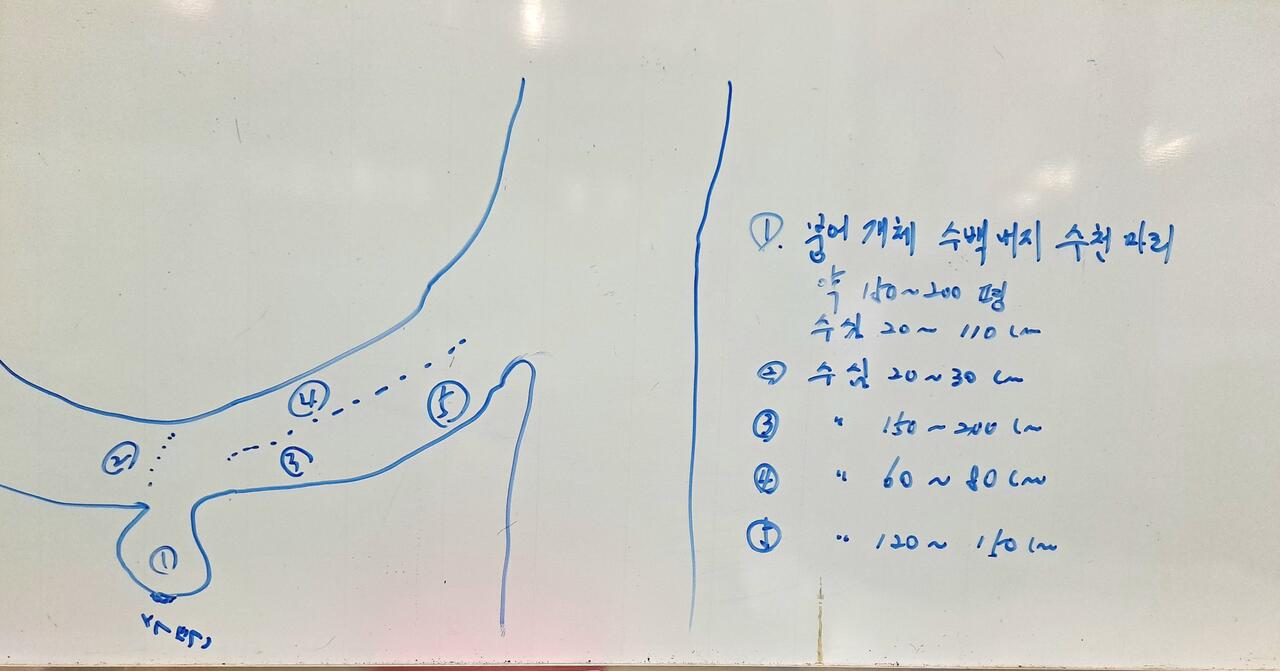 ②
④
③
⑤
①
①. 붕어 개체 수백 버지 수천 마리
약 150~200 평
수심 20~ 110 cm
② 수심 20~30 cm
③ 〃 150~200 cm
④ 〃 60~80 cm
⑤ 〃 120~ 150 cm